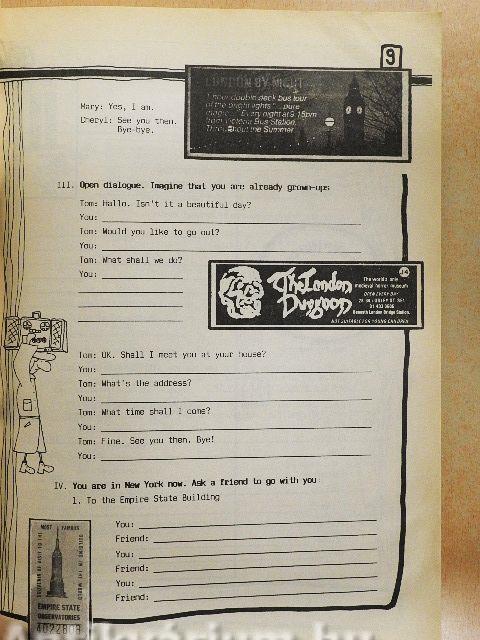 9
Mary: Yes, I am.
Cheryl: See you then.
Bye-bye.
LONDON BY NIGHT
1 hour double deck bus tour
of the bright lights ... pure
magic ... Every night at 9.15pm
from Victoria Bus Station.
Throughout the Summer
III. Open dialogue. Imagine that you are already grown-ups
Tom: Hallo. Isn't it a beautiful day?
You:
Tom: Would you like to go out?
You:
Tom: What shall we do?
You:
The London
Dungeon
14
The world's only
medieval horror museum
OPEN EVERY DAY
28/34 TOOLEY ST SE1
01 403 0606
Beneath London Bridge Station.
NOT SUITABLE FOR YOUNG CHILDREN
Tom: OK. Shall I meet you at your house?
You:
Tom: What's the address?
You:
Tom: What time shall I come?
You:
Tom: Fine. See you then. Bye!
You:
IV. You are in New York now. Ask a friend to go with you
1. To the Empire State Building
You:
Friend:
You:
Friend:
You:
Friend:
MOST FAMOUS
BUILDING IN THE WORLD
EMPIRE STATE
OBSERVATORIES